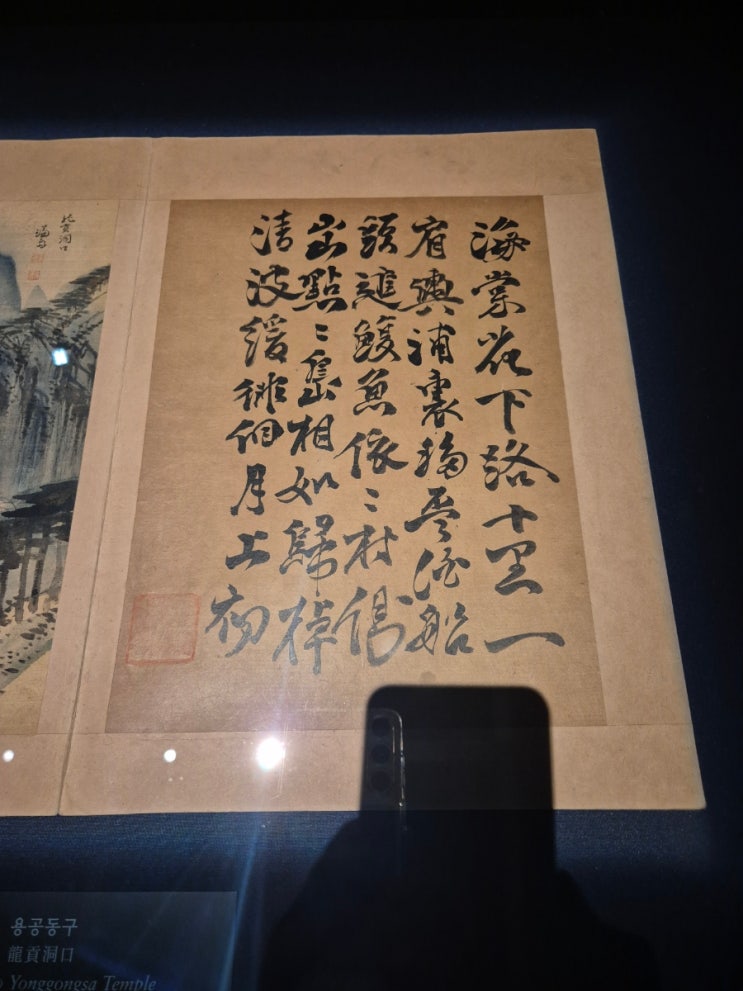 海棠花下路十里一
肩輿浦裏酒船
頭進鰒魚依〻村
出點〻島相如歸棹
清波緩徘徊月上初
龍貢洞口
謙齋
용공동구
龍貢洞口
Yonggongsa Temple